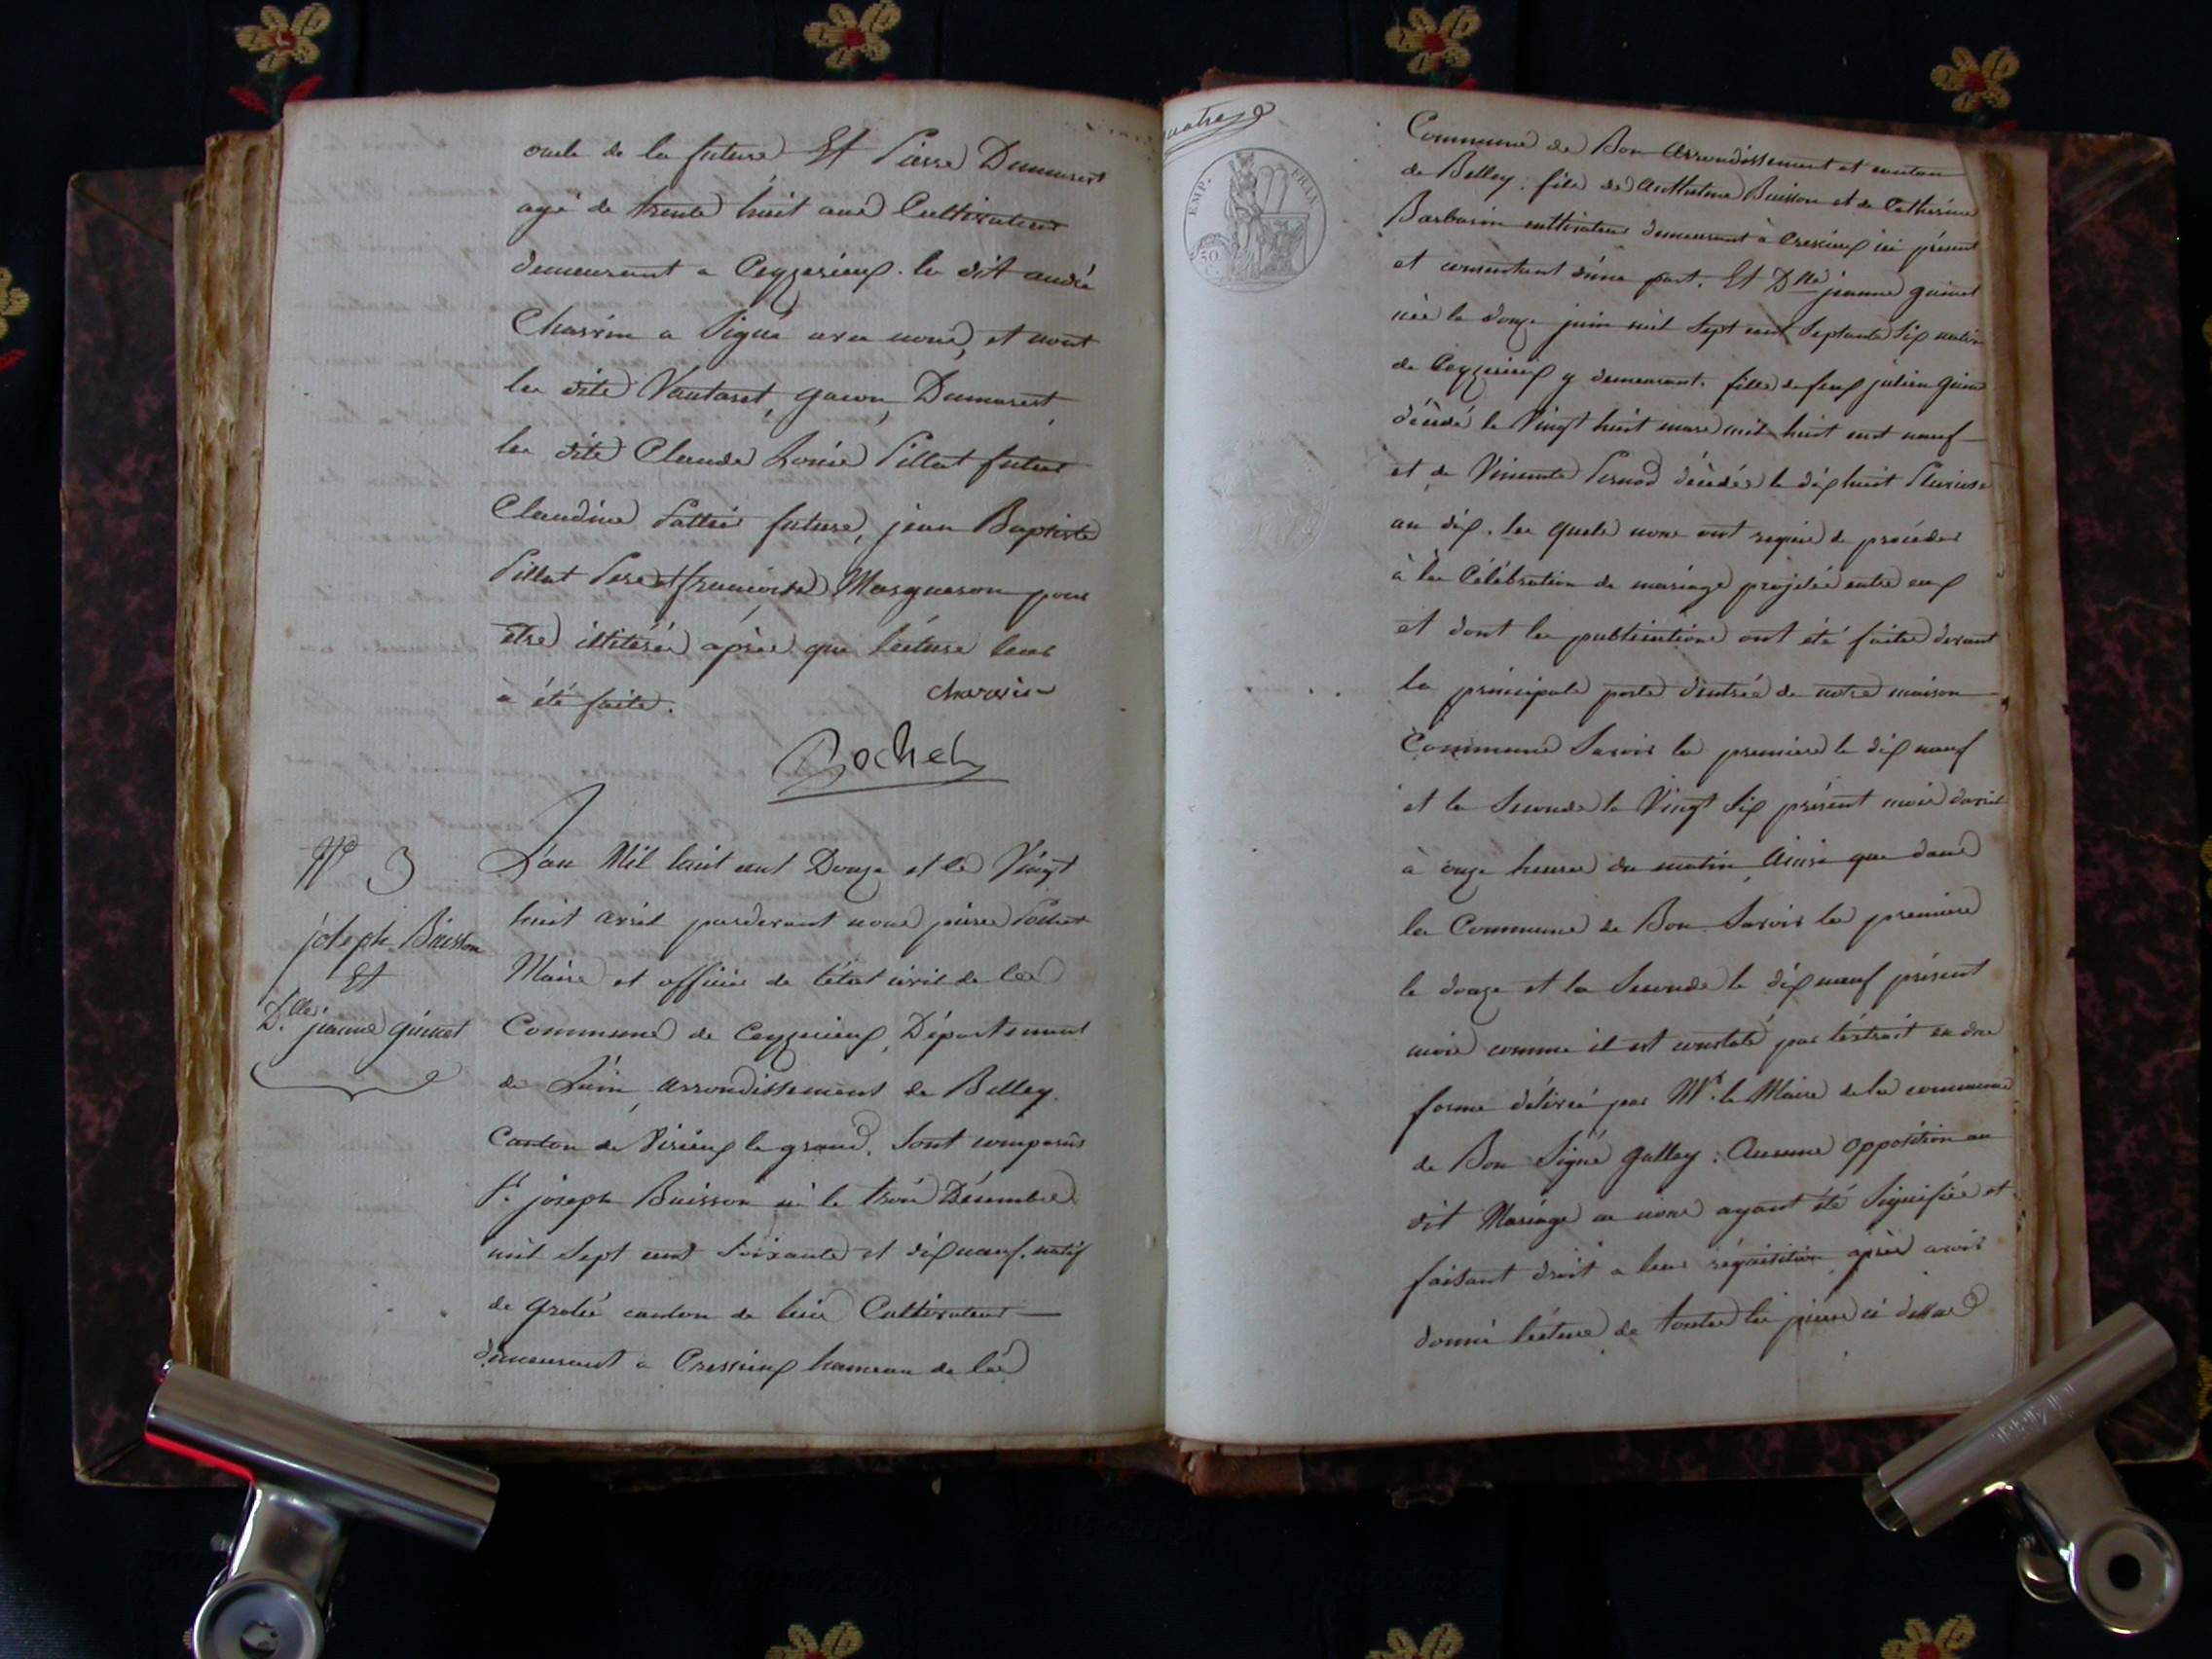 oncle de la future Et Pierre Dumarest
agé de trente huit ans Cultivateur
demeurant a Ceyzerieux. le dit andré
Charvin a signé avec nous, et nont
les dits Vautaret, gacon, Dumarest,
les dits Claude Louis Pillat futur
Claudine future, jean Baptiste
Pillat Pere et francoise Masgneson pour
être illitérés après que lécture leur
à été faite. charvin
Rochet
N° 3
joseph Buisson
Et
D.lle jeanne guinet
L'an Mil huit cent Douze et le Vingt
huit avril pardevant nous
Maire et officier de l'état civil de la
Commune de Ceyzerieux, Département
de L'ain, arrondissement de Belley.
Canton de Virieux le grand. Sont comparûs
S.r joseph Buisson né le trois Décembre
mil sept cent soixante et dix neuf. natif
de grolée canton de Cultivateur
demeurant a Cressieux hameau de la
quatre
EMP. FRAN.
50
C.
Commune de Bon Arrondissement et canton
de Belley. fils de Anthelme Buisson et de Catherine
Barbarin cultivateur demeurant à Cressieux ici présent
et consentant d'une part. Et D.lle jeanne guinet
née le douze juin mil sept cent septante six native
de Ceyzerieux y demeurant. fille de feux julien guinet
décédé le Vingt huit mars mil huit cent neuf
et de Vincente Pernod décédée le dix huit Pluviose
an dix. les quels nous ont requis de procéder
à la Célébration de mariage projetée entre eux
et dont les publications ont été faites devant
la principale porte d'entrée de notre maison
Commune Savoir la premiere le dix neuf
et la Seconde le Vingt Six présent mois d'avril
à onze heures du matin, Ainsi que dans
la Commune de Bon Savoir la premiere
le douze et la Seconde le dix neuf présent
mois comme il est constaté par l'éxtrait en due
forme délivré par M.r le Maire de la commune
de Bon Signé Galley. Aucune Opposition au
dit Mariage ne nous ayant été Signifiée et
faisant droit a leur réquisition, après avoir
donné lécture de toutes les pièces ci dessus